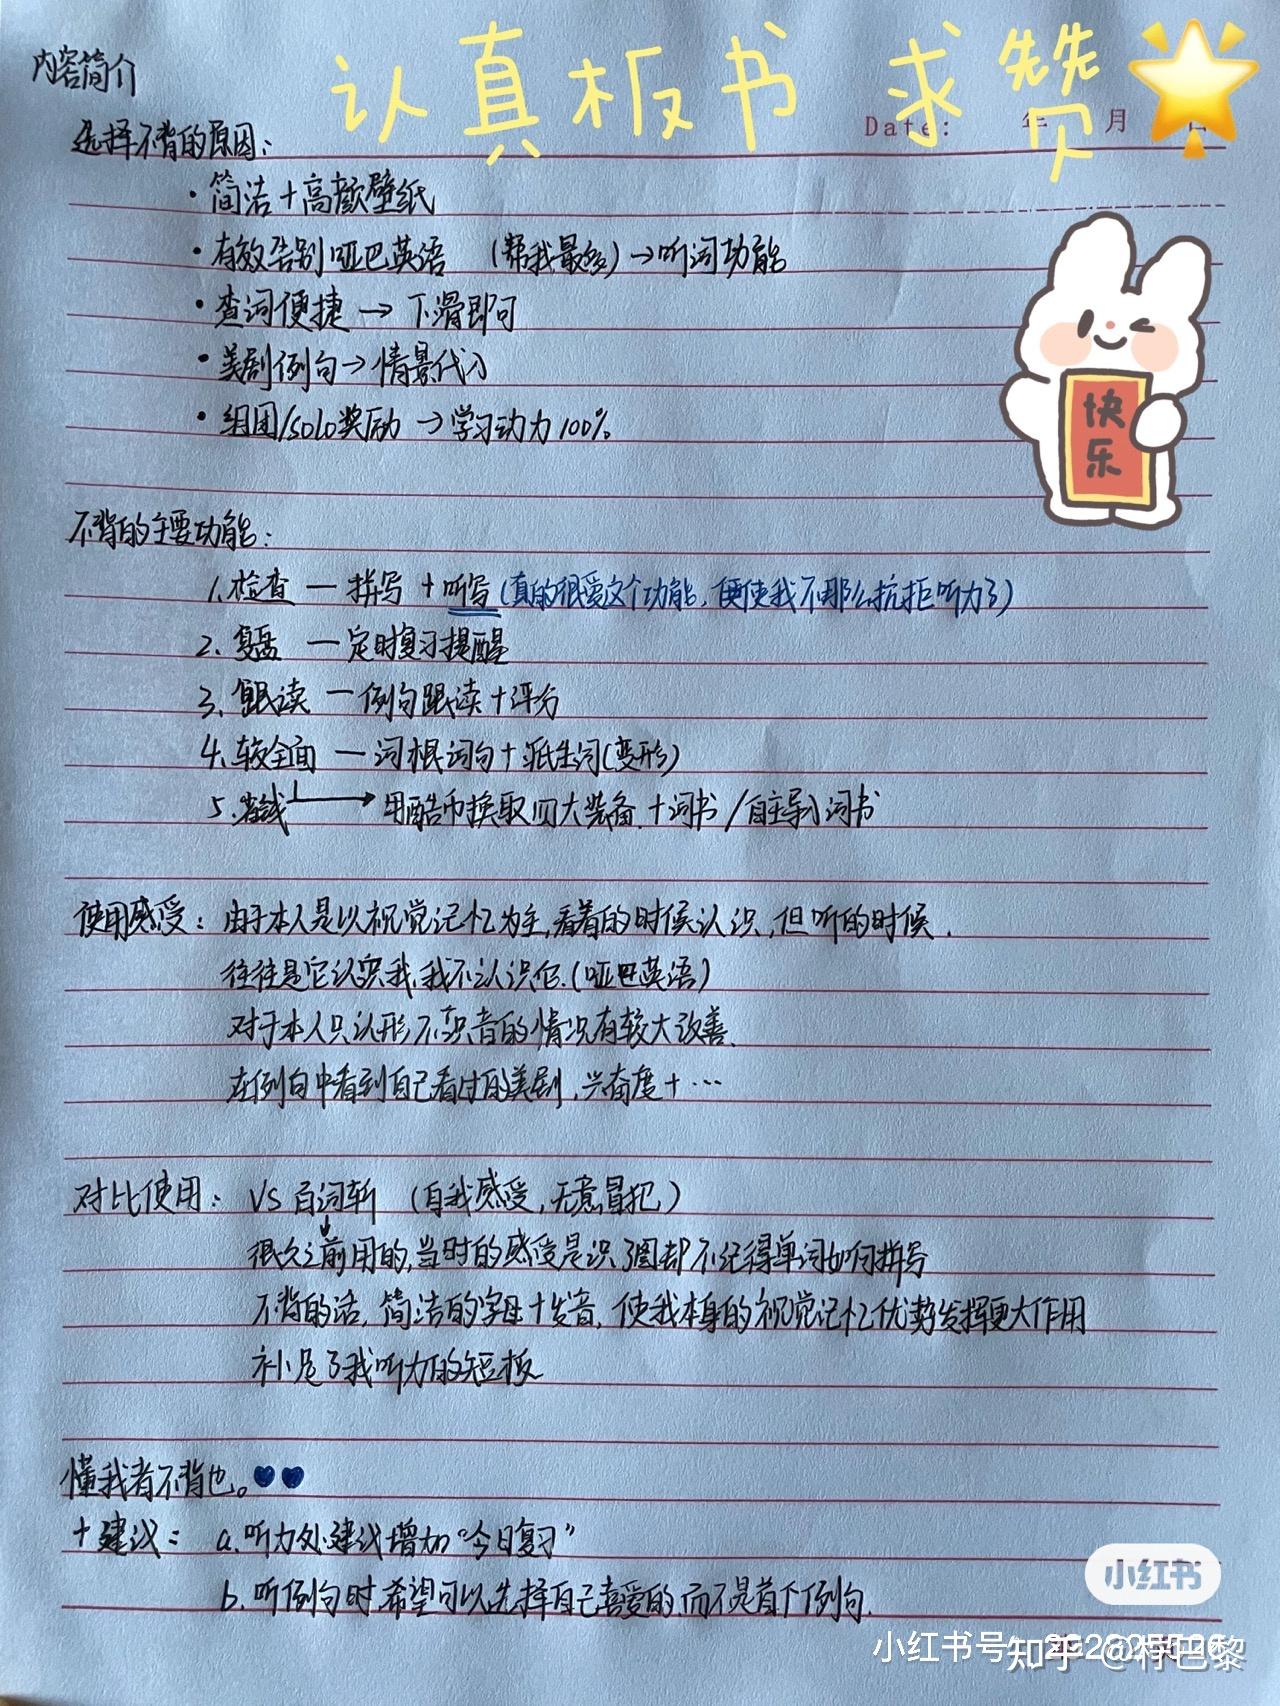 认真板书 求赞
内容简介
Date: 年 月
选择不背的原因：
·简洁+高颜壁纸
·有效告别哑巴英语 (帮我最多)→听词功能
·查词便捷→下滑即可
·美剧例句→情景代入
·组团/solo奖励→学习动力100%
快乐
不背的主要功能：
1.检查—拼写+听写(真的很爱这个功能,便使我不那么抗拒听力了)
2.复盘—定时复习提醒
3.跟读—例句跟读+评分
4.较全面—词根词句+派生词(变形)
5.省钱→用酷币换取四大装备+词书/自主导入词书
使用感受：由于本人是以视觉记忆为主,看着的时候认识,但听的时候,
往往是它认识我,我不认识它.(哑巴英语)
对于本人只认形不识音的情况有较大改善.
在例句中看到自己看过的美剧,兴奋度+…
对比使用：VS百词斩 (自我感受,无意冒犯)
很久之前用的,当时的感受是识了图却不记得单词如何拼写
不背的话,简洁的字母+发音,使我本身的视觉记忆优势发挥更大作用
补足了我听力的短板
懂我者不背也。
+建议：a.听力处建议增加“今日复习”
b.听例句时,希望可以选择自己喜爱的,而不是首个例句.
小红书
小红书号：
知乎 @柠巴黎